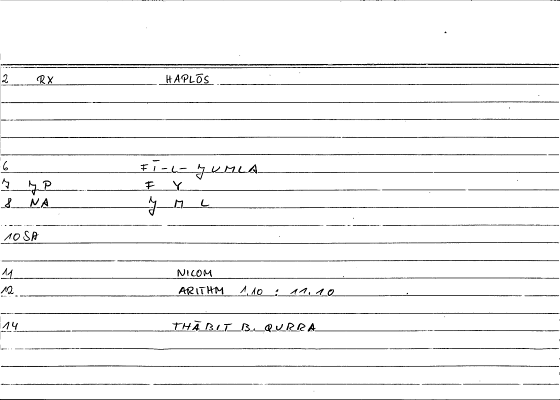 2 RX HAPLŌS
6 FĪ-L-JUMLA
7 JP F Y
8 NA J M L
10 SA
11 NICOM
12 ARITHM 1.10 : 11.10
14 THĀBIT B. QURRA